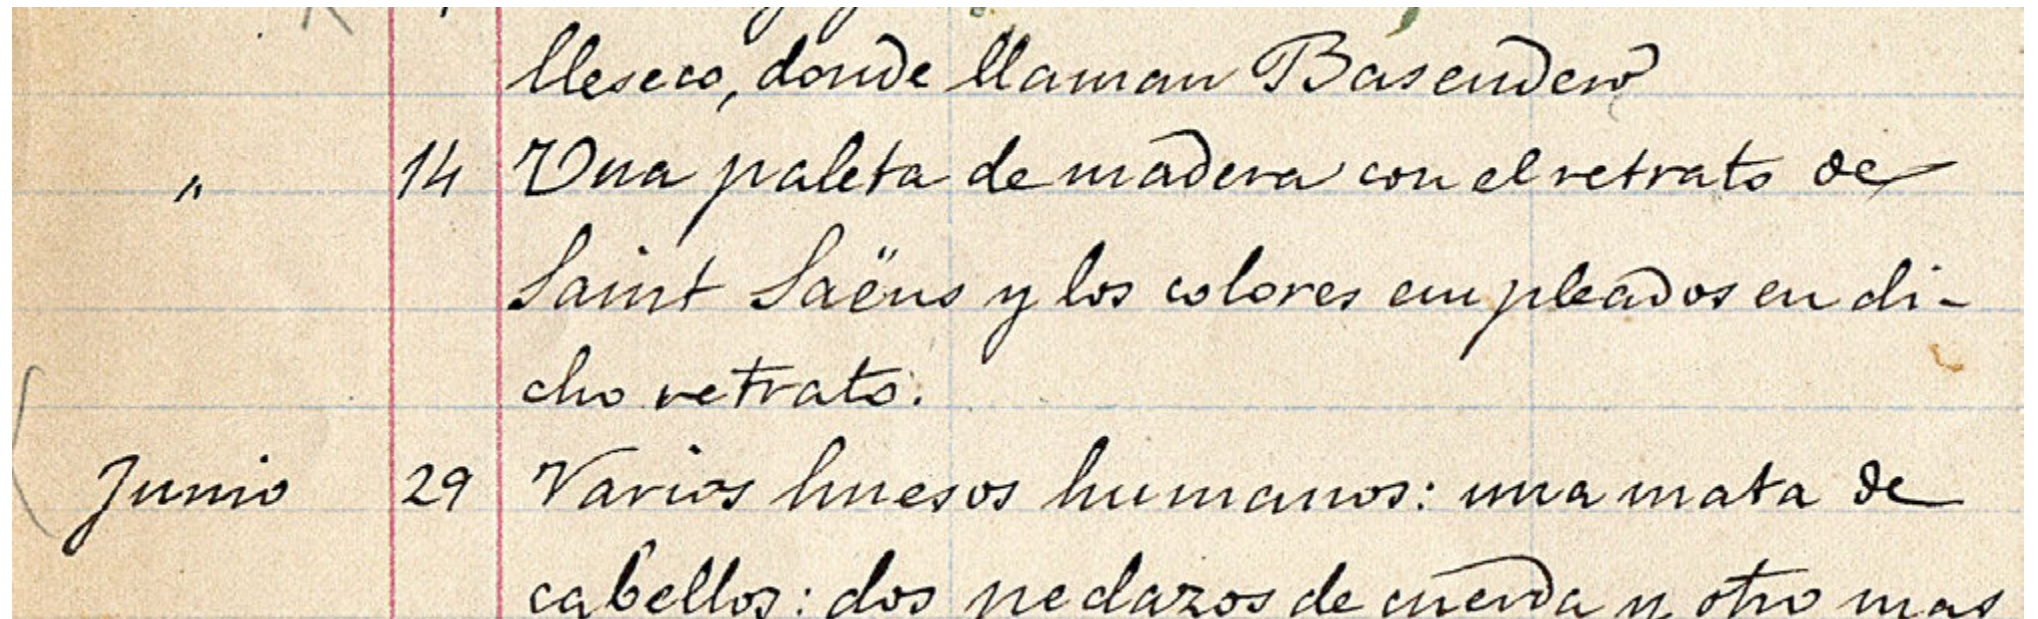 lleseco, donde llaman Basendero
" 14 Una paleta de madera con el retrato de
Saint Saëns y los colores empleados en di-
cho retrato.
Junio 29 Varios huesos humanos: una mata de
cabellos: dos pedazos de cuerda y otro mas